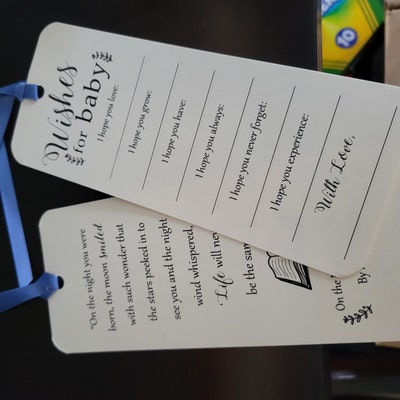 Wishes
for baby
I hope you love:
I hope you grow:
I hope you have:
I hope you always:
I hope you never forget:
I hope you experience:
With Love,
"On the night you were
born, the moon smiled
with such wonder that
the stars peeked in to
see you and the night
wind whispered,
Life will nev
be the sam
On the
By
10